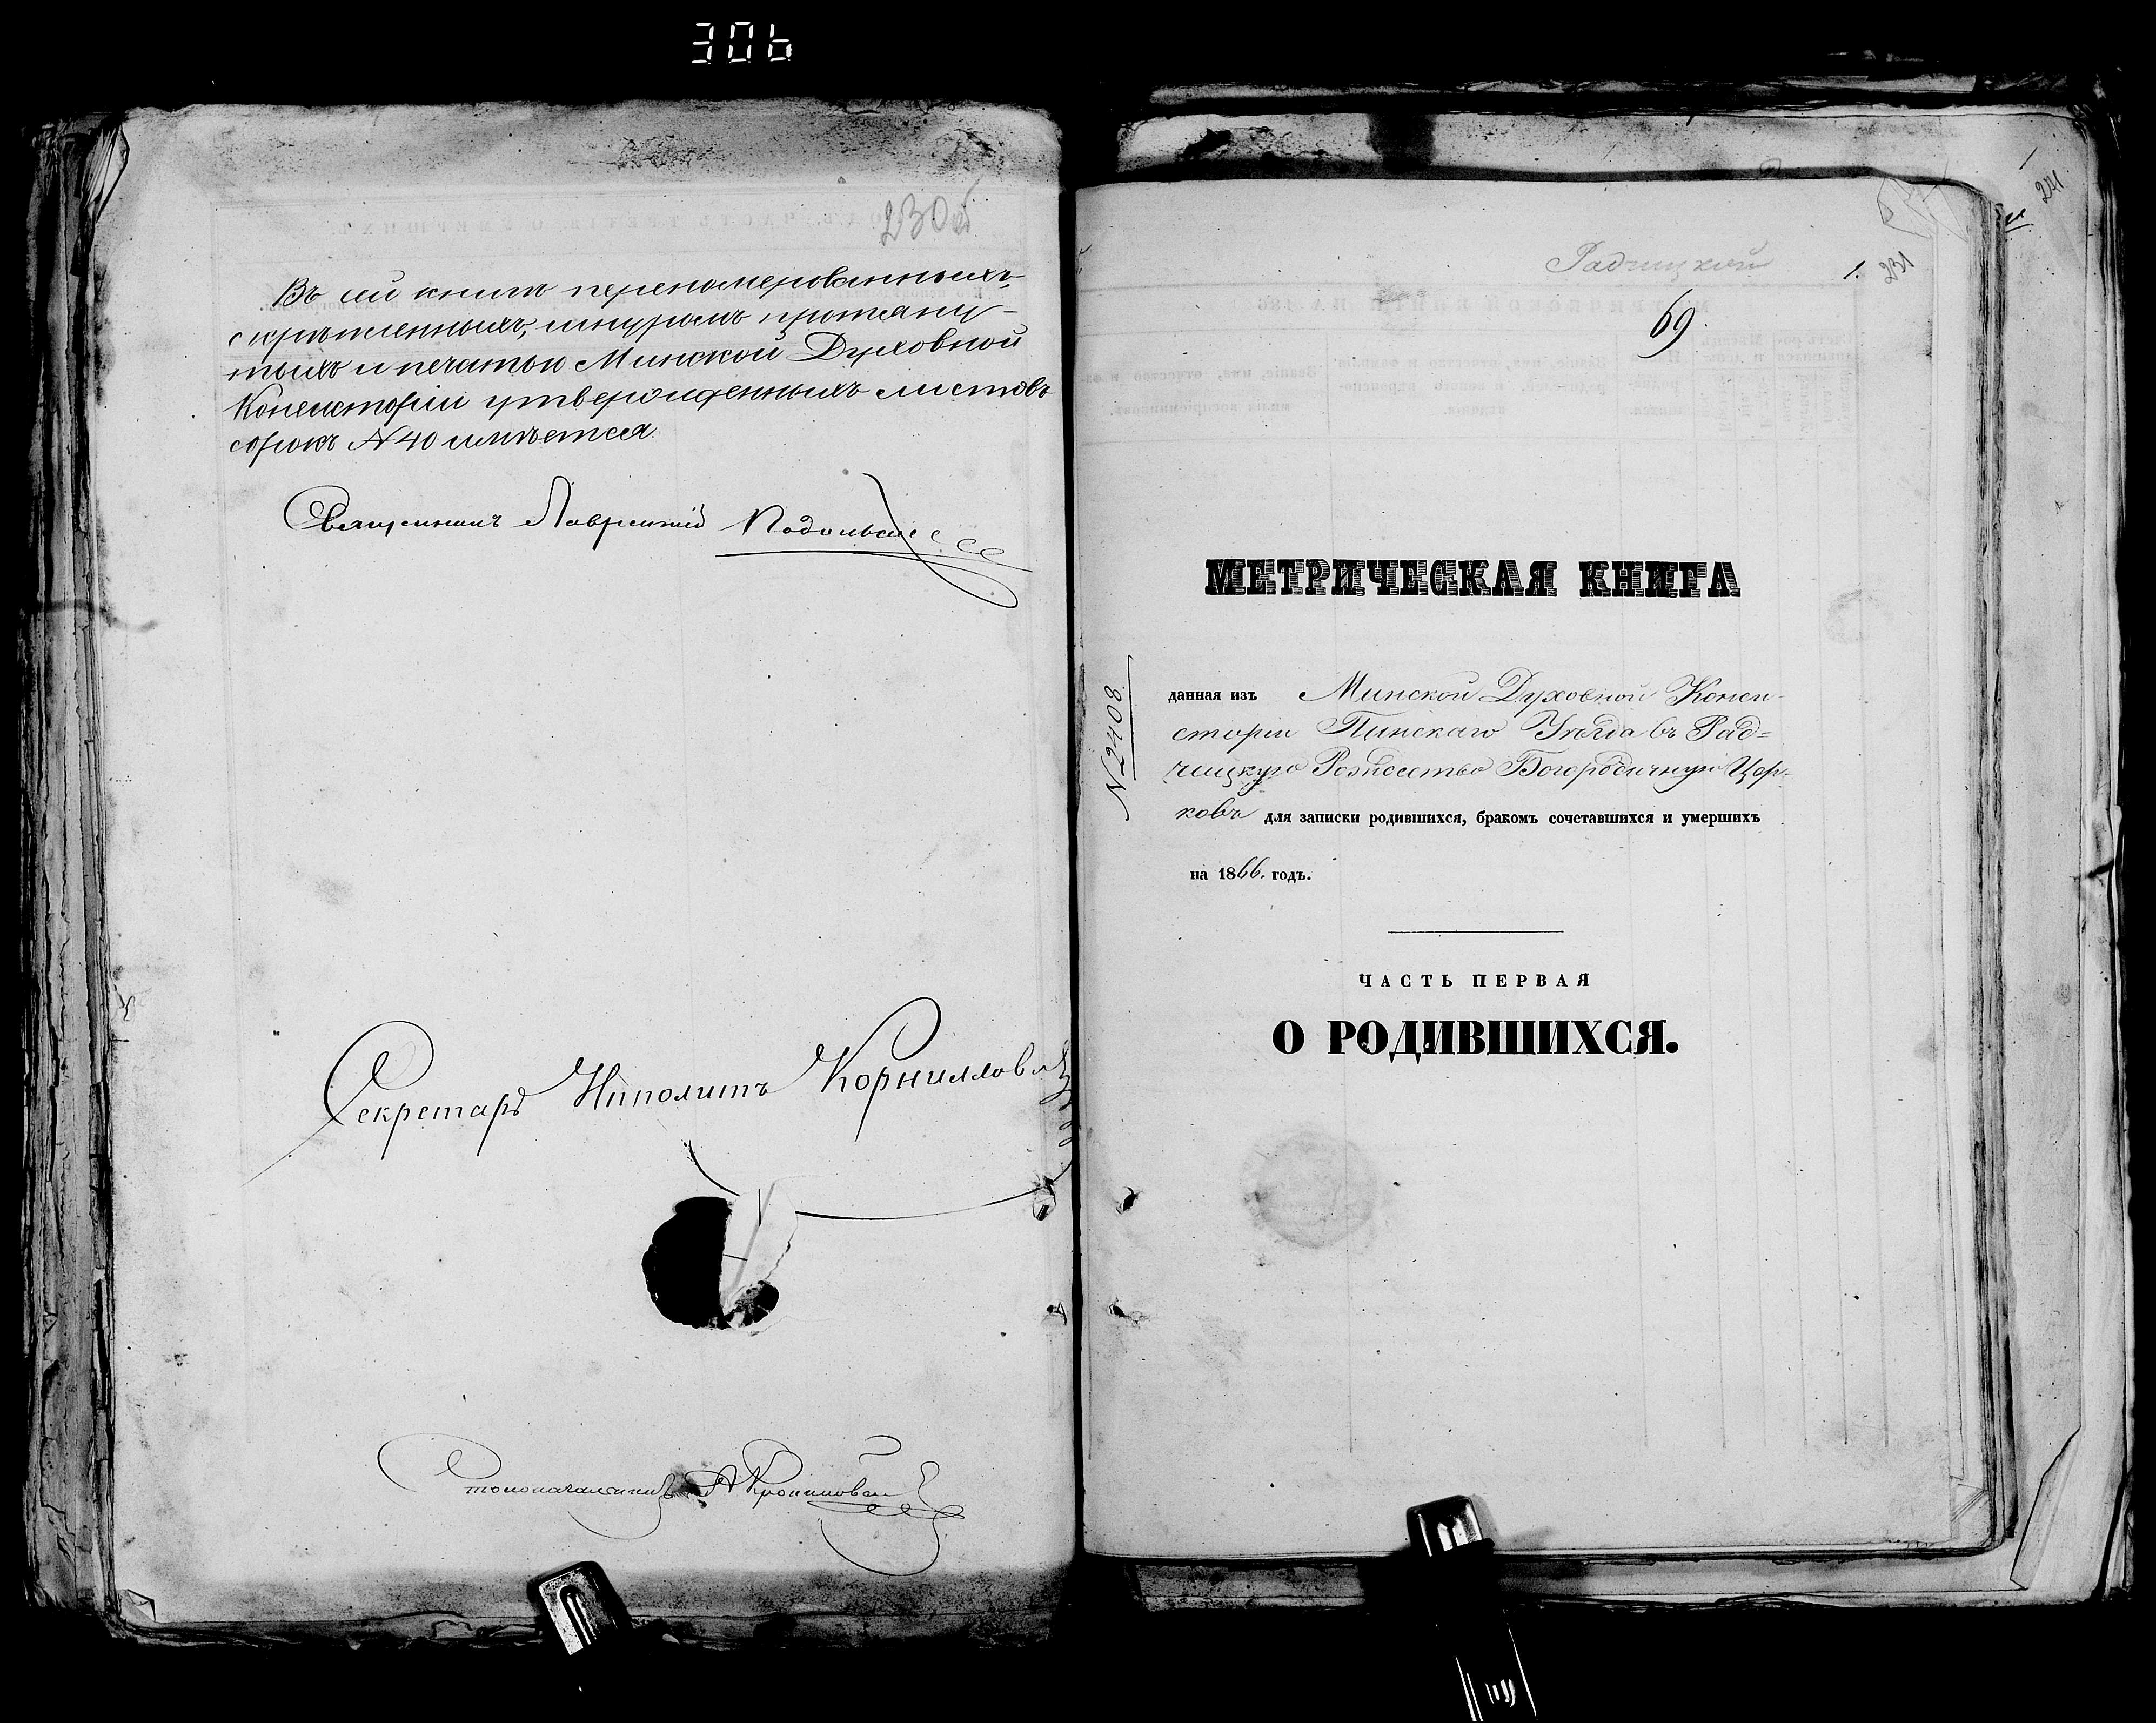 306
230об
Въ сей книгѣ перенумерованныхъ,
скрѣпленныхъ, шнуромъ протяну-
тыхъ и печатью Минской Духовной
Консисторіи утвержденныхъ листовъ
сорокъ N 40 имѣется
Священникъ Лаврентій Подольскі
Секретарь Ипполитъ Корниллов
Столоначальникъ
241
Радчицкой
1. 231
69.
МЕТРИЧЕСКАЯ КНИГА
N 2408
данная изъ Минской Духовной Конси-
сторіи Пинскаго Уѣзда въ Рад=
чицкую Рождество Богородичную Цер-
ковь для записки родившихся, бракомъ сочетавшихся и умершихъ
на 1866. годъ.
ЧАСТЬ ПЕРВАЯ
О РОДИВШИХСЯ.